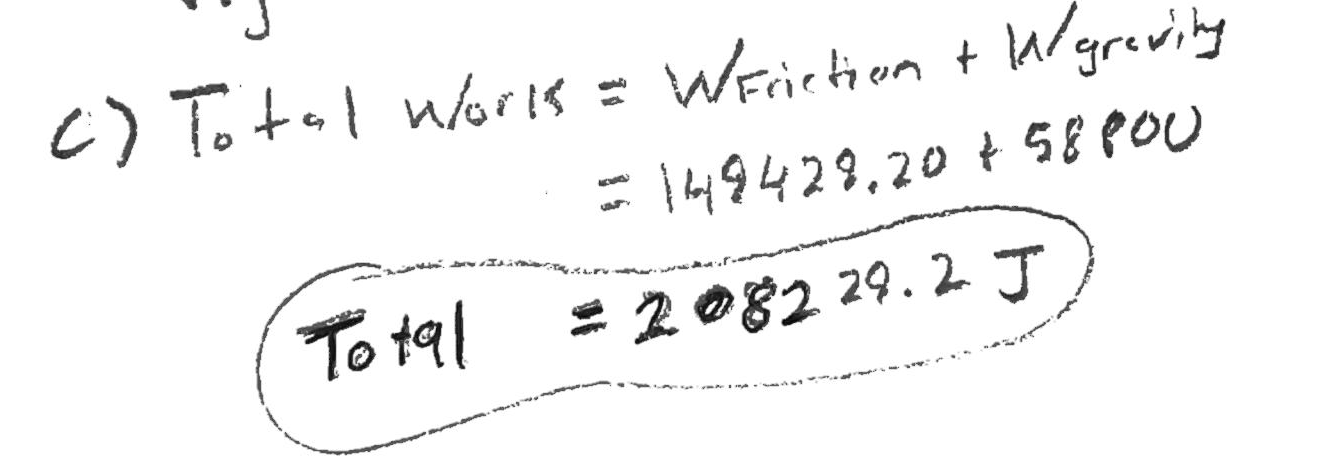 c) Total Work = WFriction + Wgravity
= 149429.20 + 58800
Total = 208229.2 J